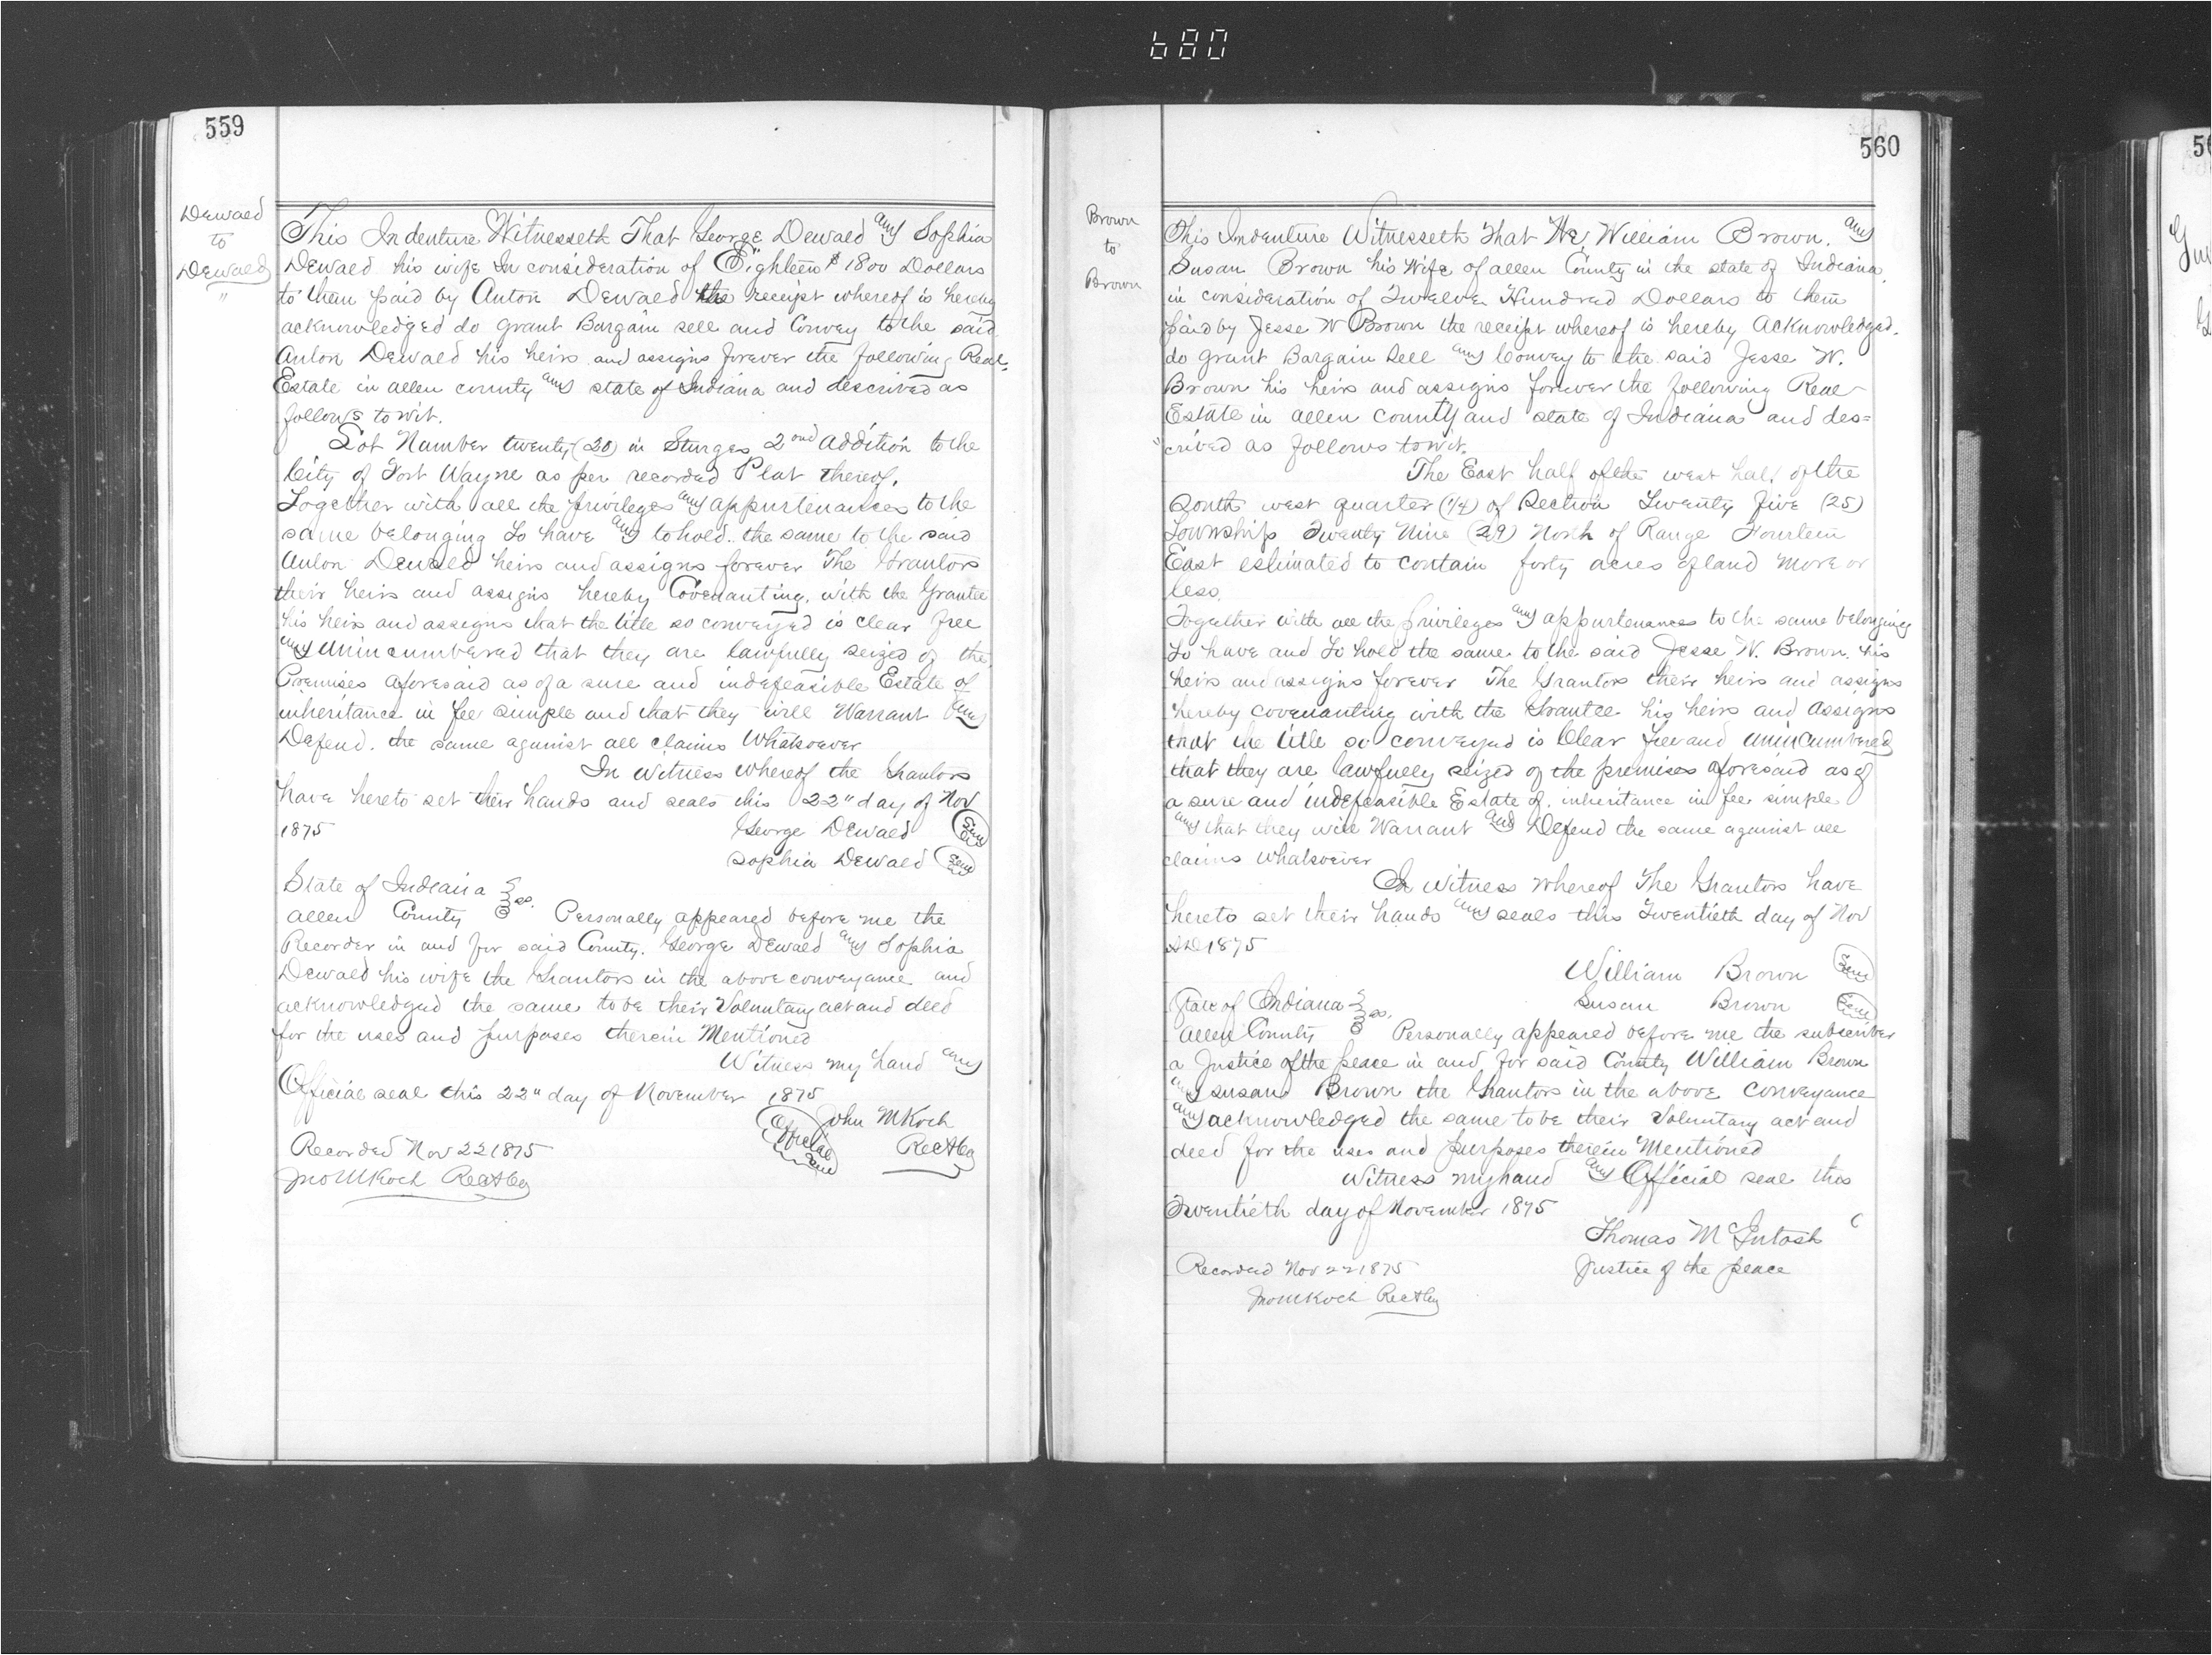 680
559
Dewald
to
Dewald
"
This Indenture Witnesseth That George Dewald and Sophia
Dewald his wife In consideration of Eighteen $ 1800 Dollars
to them paid by Anton Dewald the receipt whereof is hereby
acknowledged do grant Bargain sell and Convey to the said
Anton Dewald his heirs and assigns forever the following Real
Estate in allen county and state of Indiana and descrived as
follows to wit.
Lot Number twenty (20) in Sturges 2nd addition to the
City of Fort Wayne as per recorded Plat thereof.
Together with all the privileges and appurtenances to the
same belonging To have and to hold. the same to the said
Anton Dewald heirs and assigns forever The Grantors
their heirs and assigns hereby Covenanting. with the Grantee
his heirs and assigns that the title so conveyed is clear free
and unincumbered that they are lawfully seized of the
Premises aforesaid as of a sure and indefeasible Estate of
inheritance in fee simple and that they will Warrant and
Defend. the same against all claims Whatsoever
In Witness whereof the Grantors
have hereto set their hands and seals this 22" day of Nov
1875 George Dewald Seal
Sophia Dewald Seal
State of Indiana
allen County ss. Personally appeared before me the
Recorder in and for said County. George Dewald and Sophia
Dewald his wife the Grantors in the above conveyance and
acknowledged the same to be their Voluntary act and deed
for the uses and purposes therein Mentioned
Witness my hand and
Official seal this 22" day of November 1875
Official Seal John M Koch
Recorded Nov 22 1875 RecAlleg
Jno M Koch
560
Brown
to
Brown
This Indenture Witnesseth That We, William Brown. and
Susan Brown his Wife of allen County in the state of Indiana
in consideration of Twelve Hundred Dollars to them
paid by Jesse W Brown the receipt whereof is hereby acknowledged.
do grant Bargain Sell and Convey to the said Jesse W.
Brown his heirs and assigns forever the following Real
Estate in allen county and state of Indiana and des=
"crived as follows to wit.
The East half of the west half of the
South west quarter (1/4) of Section Twenty Five (25)
Township Twenty Nine (29) North of Range Fourteen
East estimated to contain forty acres of land more or
less.
Together with all the privileges and appurtenances to the same belonging
To have and To hold the same to the said Jesse W. Brown. his
heirs and assigns forever The Grantors their heirs and assigns
hereby covenanting with the Grantee his heirs and assigns
that the title so conveyed is Clear free and unincumbered
that they are lawfully seized of the premises aforesaid as of
a sure and indefeasible Estate of. inheritance in fee simple
and that they will Warrant and Defend the same against all
claims whatsoever
In witness whereof The Grantors have
hereto set their hands and seals this Twentieth day of Nov
AD 1875
William Brown Seal
State of Indiana Susan Brown Seal
allen County ss. Personally appeared before me the subscriber
a Justice of the peace in and for said County William Brown
and Susan Brown the Grantors in the above conveyance
and acknowledged the same to be their Voluntary act and
deed for the uses and purposes therein Mentioned
Witness my hand and Official seal this
Twentieth day of November 1875
Thomas McIntosh
Recorded Nov 22 1875 Justice of the peace
Jno M Koch